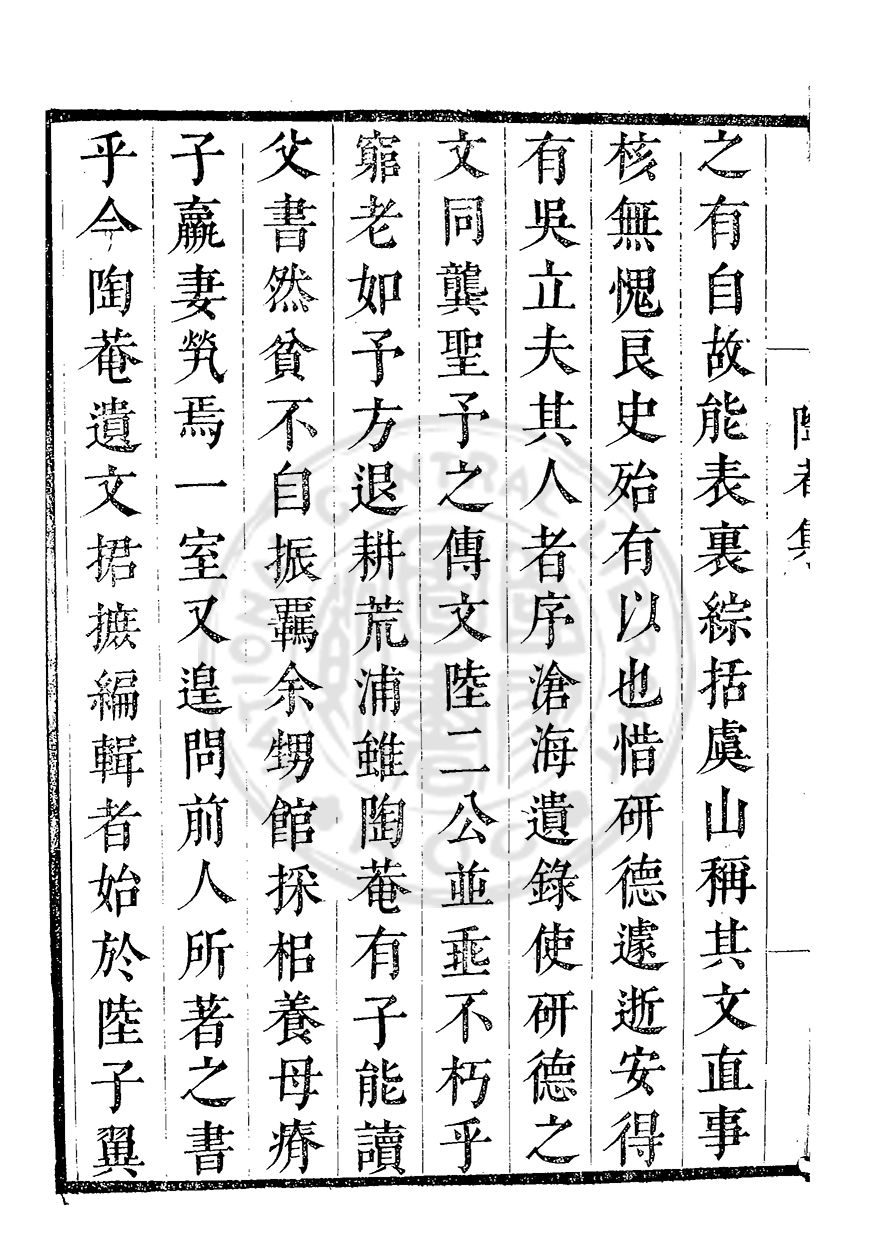 之有自故能表裏綜括虞山稱其文直事
核無愧良史殆有以也惜研德遽逝安得
有吳立夫其人者序滄海遺錄使研德之
文同龔聖予之傳文陸二公並垂不朽乎
窮老如予方退耕荒浦雖陶菴有子能讀
父書然貧不自振羈余甥館採梠養母瘠
子羸妻煢焉一室又遑問前人所著之書
乎今陶菴遺文捃摭編輯者始於陸子翼